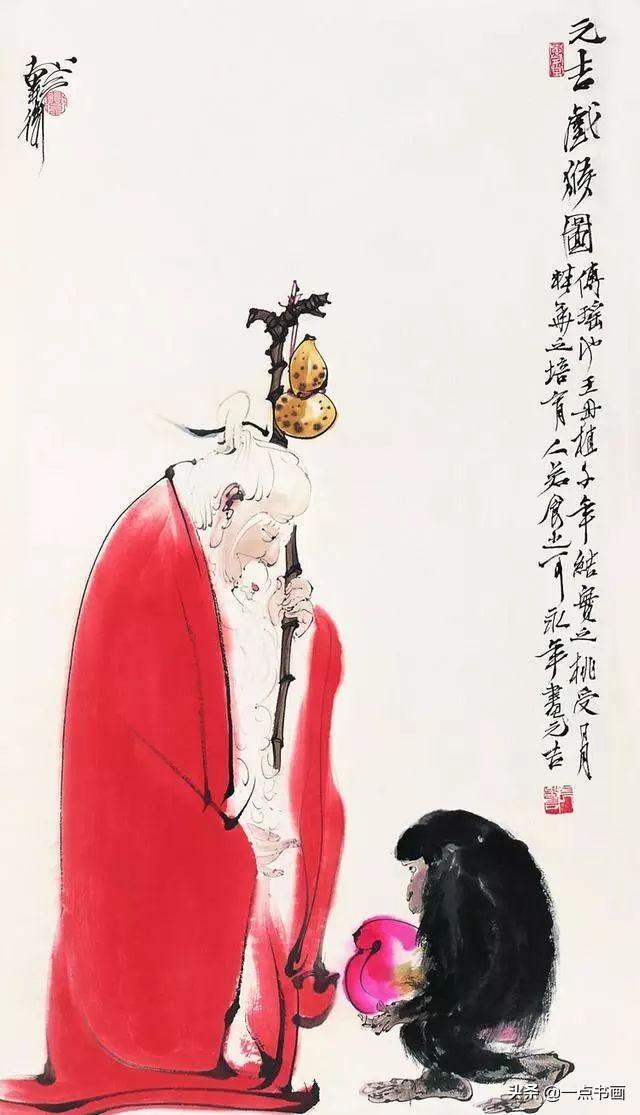 元吉戲猴圖
傳瑶池王母植千年結實之桃受日月
精華之培育人若食之可永年畫元吉
头条 @一点书画